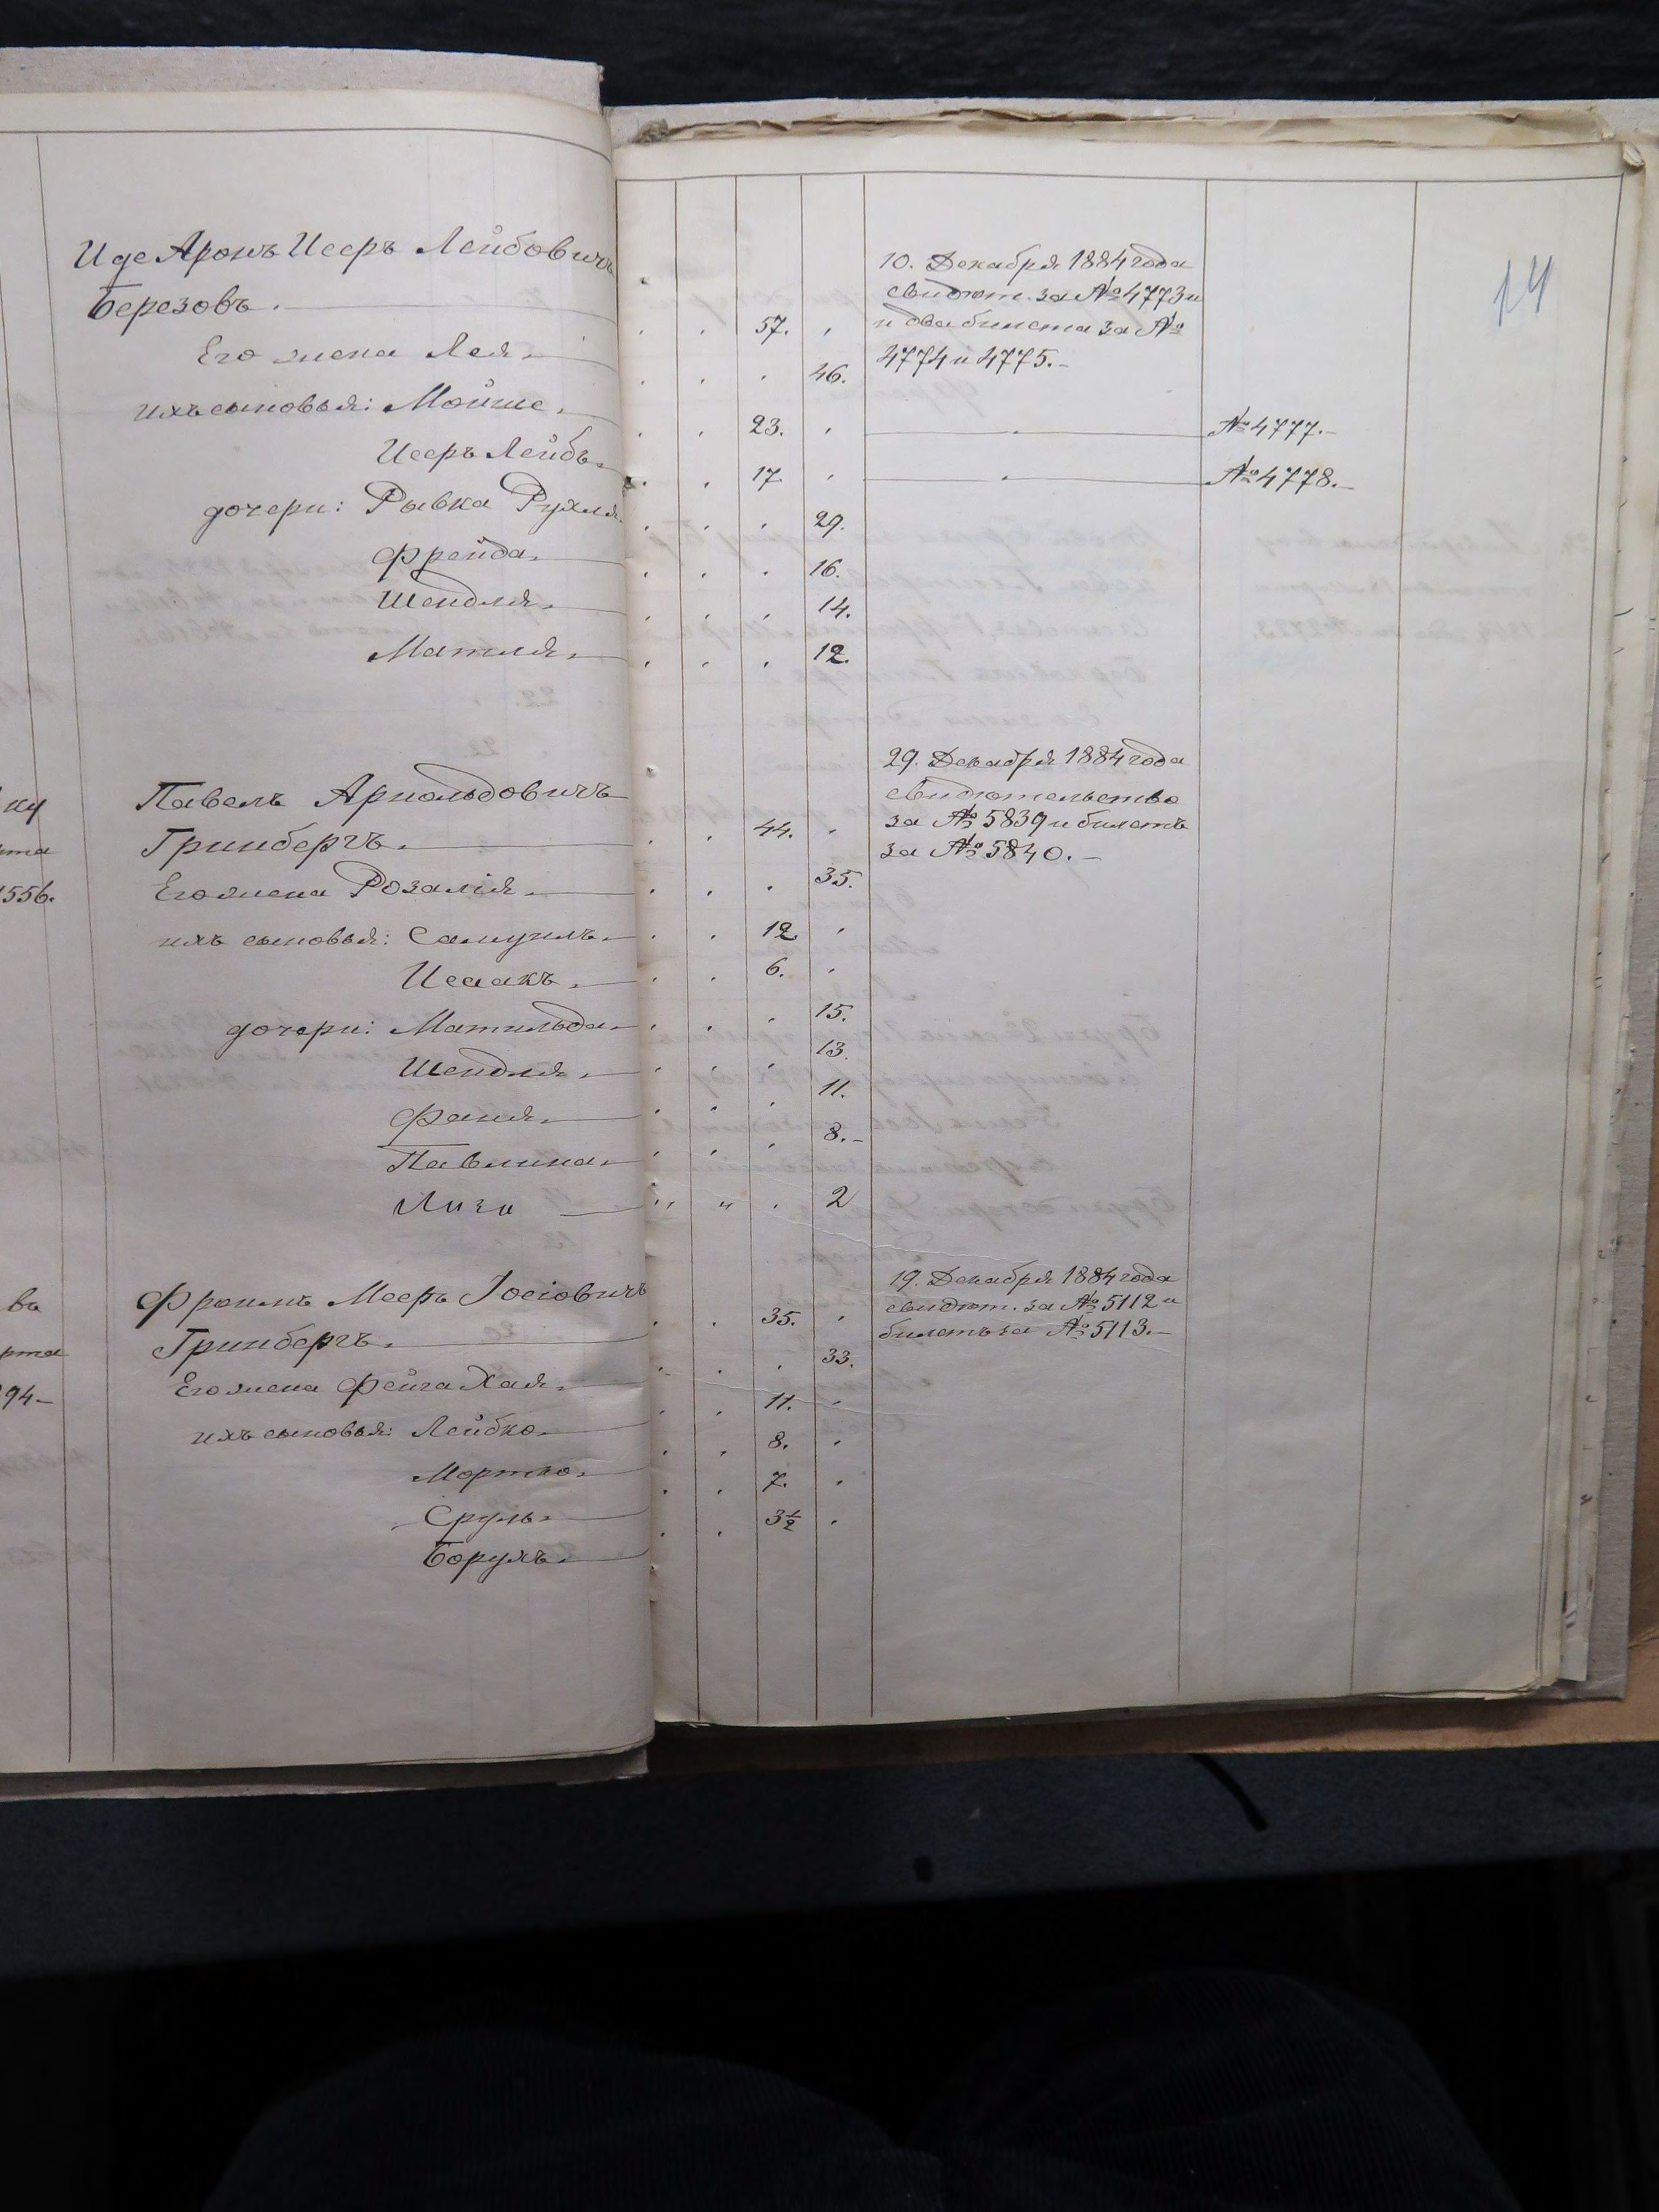 14
Иде Аронъ Исеръ Лейбовичъ
Березовъ. 57.
10. Декабря 1884 года
свидѣт. за № 4773 и
и два билета за №
4774 и 4775.
Его жена Лея. 46.
ихъ сыновья: Мойше. 23. № 4777.
Исеръ Лейбъ. 17. № 4778.
дочери: Рывка Рухля. 29.
Фрейда. 16.
Шендля. 14.
Матля. 12.
ку
рта
556.
Павелъ Арнольдовичъ
Гринбергъ. 44.
29. Декабря 1884 года
свидѣтельство
за № 5839 и билетъ
за № 5840.
Его жена Розалія. 35.
ихъ сыновья: Самуилъ. 12
Исаакъ. 6.
дочери: Матильда. 15.
Шендля. 13.
Фаня. 11.
Павлина. 8.
Лиза 2
въ
рта
94
Фроимъ Мееръ Іосіовичъ
Гринбергъ. 35.
19. Декабря 1884 года
свидѣт. за № 5112 и
билетъ за № 5113.
Его жена Фейга Хая. 33.
ихъ сыновья: Лейбко. 11.
Мортко. 8.
Сруль. 7.
Борухъ. 3½